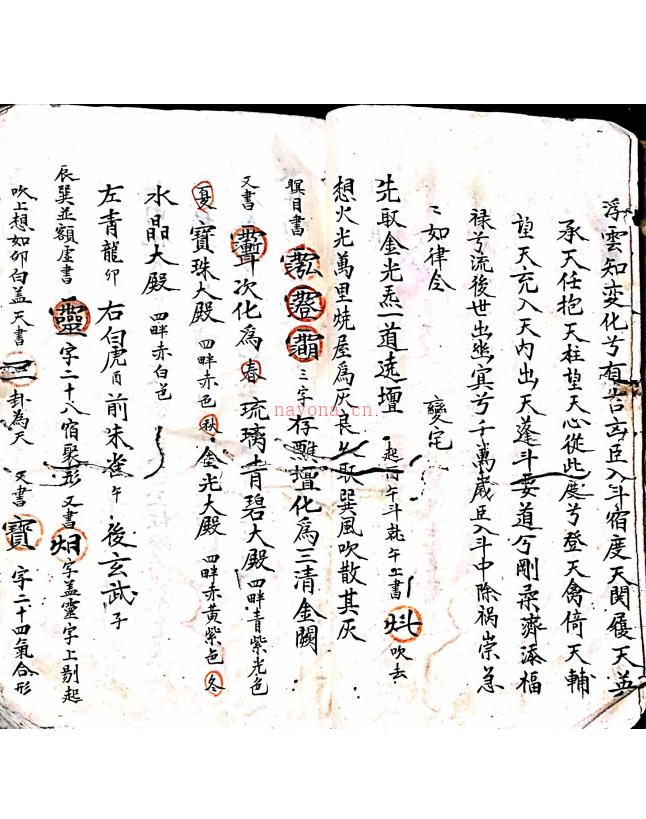 浮雲知变化兮有吉 臣入斗宿度天関履天英
承天任抱天柱望天心從此度兮登天禽倚天輔
望天充入天内出天蓬斗要道兮剛柔濟添福
禄兮流後世出幽冥兮千萬歲臣入斗中除祸祟急
〻如律令
变宅
先取金光炁一道遶壇 起丙午斗 午上書 吹去
想火光萬里燒屋爲灰 取巽風吹散其灰
瞑目書 三字存 壇化爲三清金闕
又書 次化爲春琉璃青碧大殿 四畔青紫光色
夏寶珠大殿 四畔赤色 秋金光大殿 四畔赤黄紫色 冬
水晶大殿 四畔赤白色
左青龍卯 右白虎酉 前朱雀午 後玄武子
辰巽並額虚書靈字二十八宿聚形 又書 字盖靈字上剔起
吹上想如卯白盖天書 三 卦為天 又書 寶 字二十四氣合形
nayona.cn